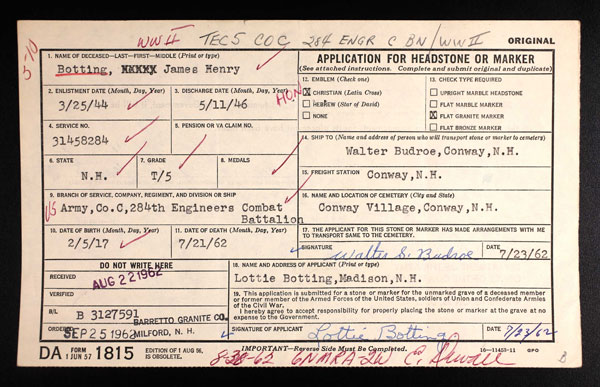 WWII TEC5 CO C 284 ENGR C BN/WW II ORIGINAL
5-10
1. NAME OF DECEASED—LAST—FIRST—MIDDLE (Print or type)
Botting, XXXXX James Henry
APPLICATION FOR HEADSTONE OR MARKER
(See attached instructions. Complete and submit original and duplicate)
2. ENLISTMENT DATE (Month, Day, Year)
3/25/44
3. DISCHARGE DATE (Month, Day, Year)
5/11/46
HON
12. EMBLEM (Check one)
X CHRISTIAN (Latin Cross)
HEBREW (Star of David)
NONE
13. CHECK TYPE REQUIRED
UPRIGHT MARBLE HEADSTONE
FLAT MARBLE MARKER
X FLAT GRANITE MARKER
FLAT BRONZE MARKER
4. SERVICE NO.
31458284
5. PENSION OR VA CLAIM NO.
14. SHIP TO (Name and address of person who will transport stone or marker to cemetery)
Walter Budroe, Conway, N.H.
6. STATE
N.H.
7. GRADE
T/5
8. MEDALS
15. FREIGHT STATION
Conway, N.H.
9. BRANCH OF SERVICE, COMPANY, REGIMENT, AND DIVISION OR SHIP
US Army, Co.C, 284th Engineers Combat
Battalion
16. NAME AND LOCATION OF CEMETERY (City and State)
Conway Village, Conway, N.H.
10. DATE OF BIRTH (Month, Day, Year)
2/5/17
11. DATE OF DEATH (Month, Day, Year)
7/21/62
17. THE APPLICANT FOR THIS STONE OR MARKER HAS MADE ARRANGEMENTS WITH ME TO TRANSPORT SAME TO THE CEMETERY.
SIGNATURE
Walter S. Budroe
DATE
7/23/62
DO NOT WRITE HERE
RECEIVED
AUG 22 1962
VERIFIED
B/L
B 3127591
ORDERED
SEP 25 1962
BARRETTO GRANITE CO.
MILFORD, N. H.
18. NAME AND ADDRESS OF APPLICANT (Print or type)
Lottie Botting, Madison, N.H.
19. This application is submitted for a stone or marker for the unmarked grave of a deceased member or former member of the Armed Forces of the United States, soldiers of Union and Confederate Armies of the Civil War.
I hereby agree to accept responsibility for properly placing the stone or marker at the grave at no expense to the Government.
SIGNATURE OF APPLICANT
Lottie Botting
DATE
7/23/62
DA FORM 1 JUN 57 1815
EDITION OF 1 AUG 56, IS OBSOLETE.
IMPORTANT—Reverse Side Must Be Completed.
16—11453-11 GPO
B